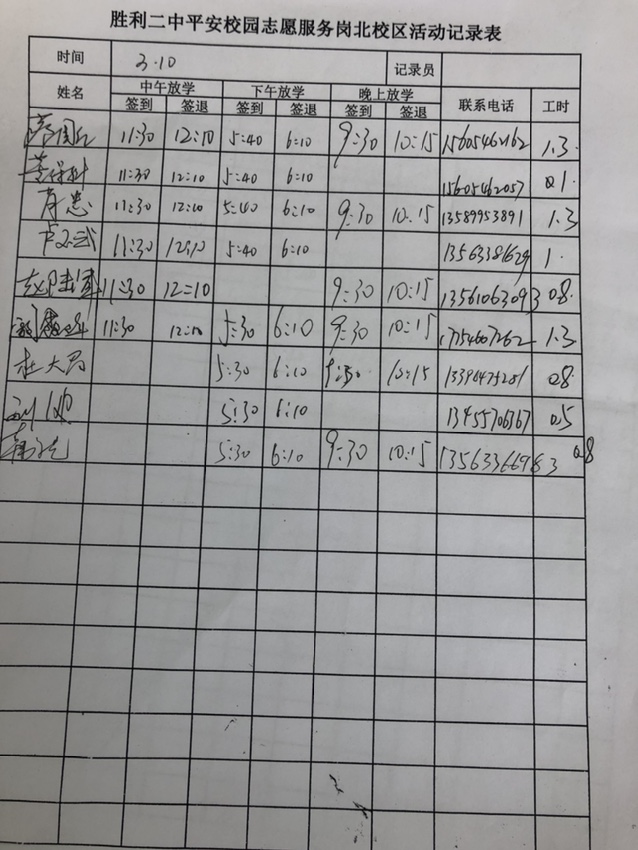 胜利二中平安校园志愿服务岗北校区活动记录表
时间 3.10 记录员
姓名 中午放学 下午放学 晚上放学 联系电话 工时
签到 签退 签到 签退 签到 签退
11:30 12:10 5:40 6:10 9:30 10:15 15605462162 1.3
11:30 12:10 5:40 6:10 15605462057 0.1
11:30 12:10 5:40 6:10 9:30 10:15 13589953891 1.3
11:30 12:10 5:40 6:10 1.
11:30 12:10 9:30 10:15 13561063093 0.8
11:30 12:10 5:30 6:10 9:30 10:15 17754607262 1.3
杜大为 5:30 6:10 9:30 10:15 0.8
5:30 6:10 13455706767 0.5
5:30 6:10 9:30 10:15 0.8